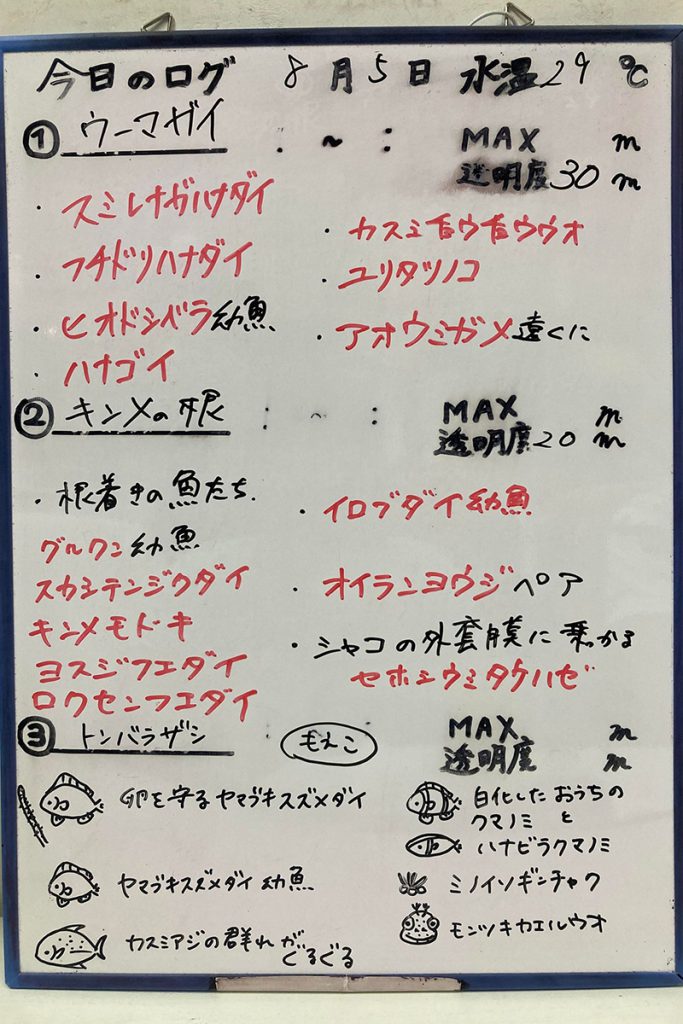 今日のログ 8月5日 水温29℃
① ウーマガイ : ~ : MAX m
透明度30m
・スミレナガハナダイ
・フチドリハナダイ
・ヒオドシベラ幼魚
・ハナゴイ
・カスミチョウチョウウオ
・ユリタツノコ
・アオウミガメ遠くに
② キンメの根 : ~ : MAX m
透明度20m
・根着きの魚たち
グルクン幼魚
スカシテンジクダイ
キンメモドキ
ヨスジフエダイ
ロクセンフエダイ
・イロブダイ幼魚
・オイランヨウジペア
・シャコの外套膜に乗っかる
セホシウミタケハゼ
③ トンバラザシ もえこ MAX m
透明度 m
卵を守るヤマブキスズメダイ
ヤマブキスズメダイ幼魚
カスミアジの群れが
ぐるぐる
白化したおうちの
クマノミと
ハナビラクマノミ
ミノイソギンチャク
モンツキカエルウオ